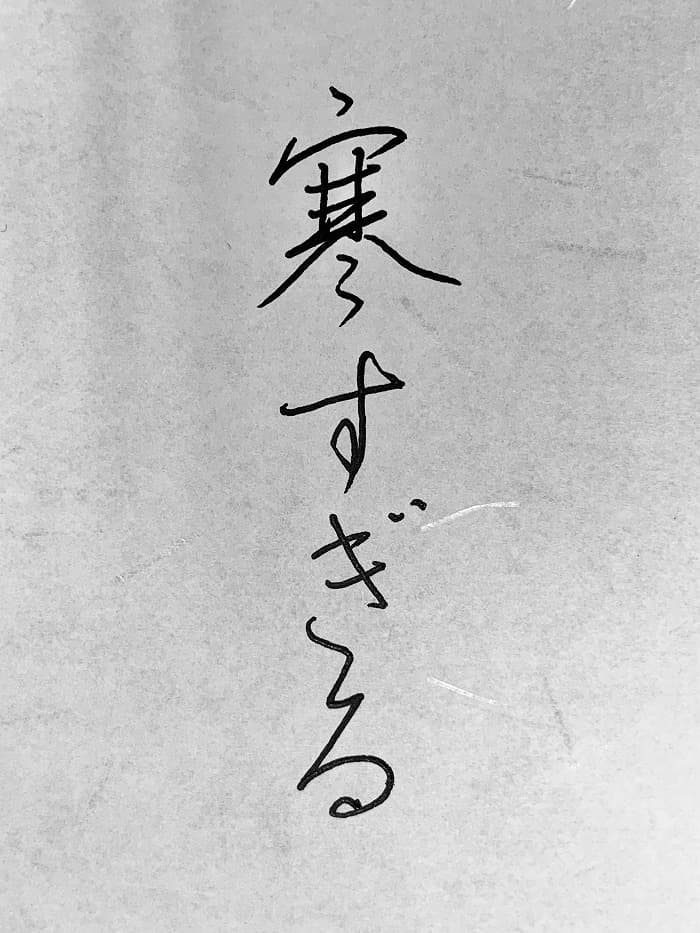 寒すぎる